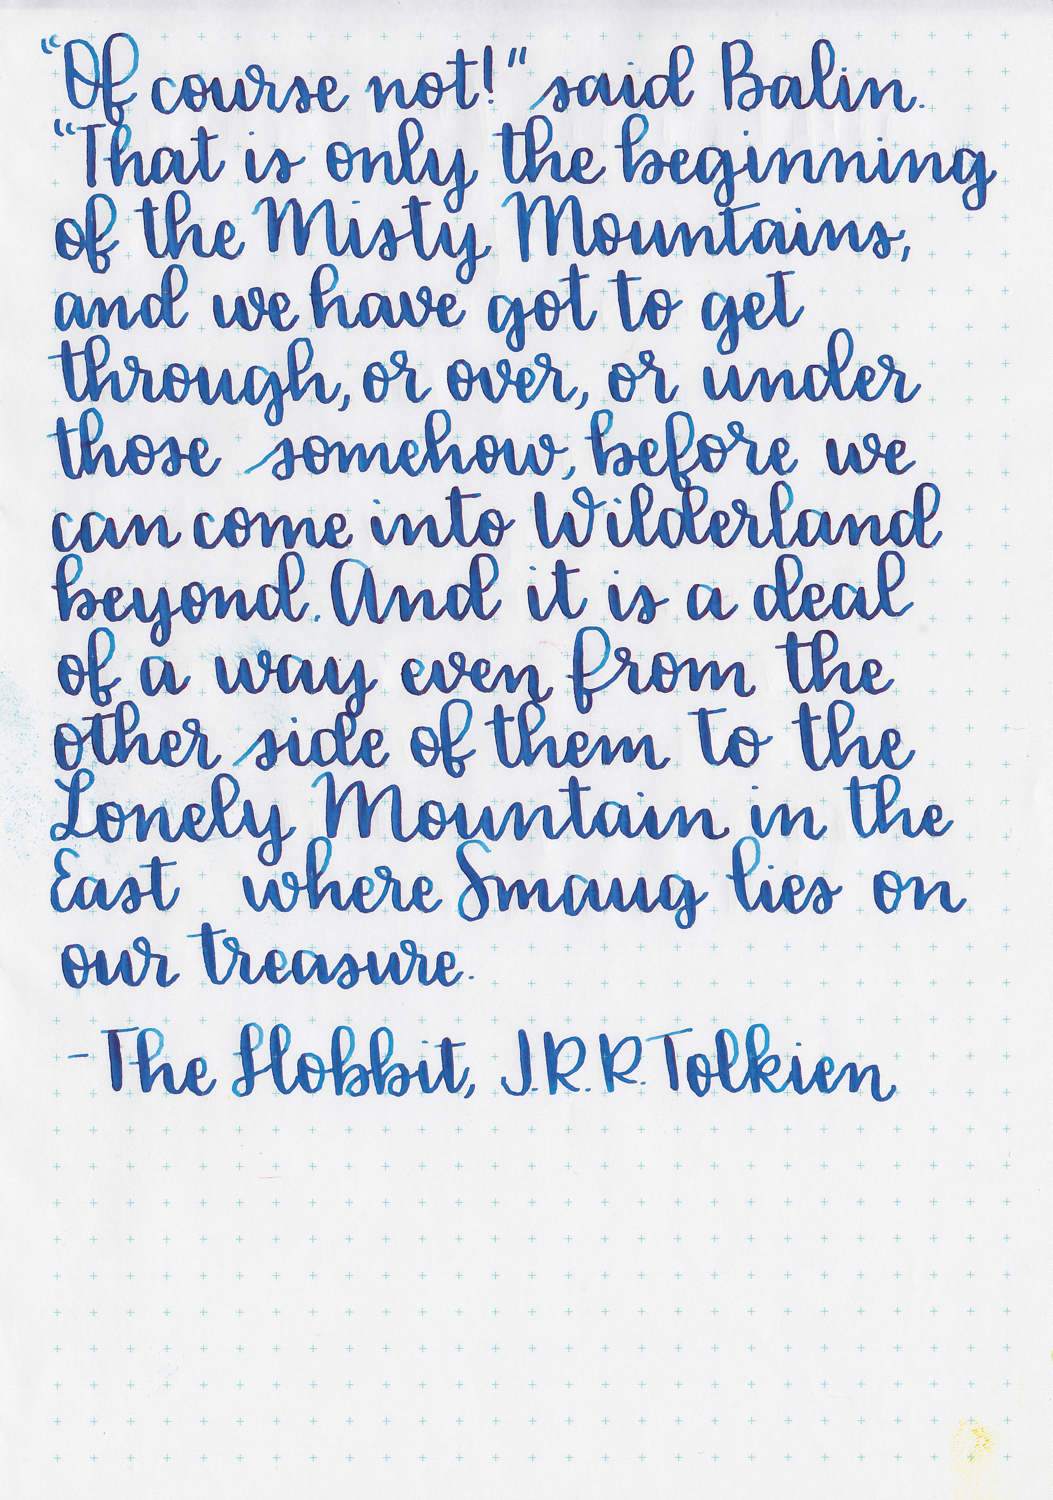 “Of course not!” said Balin.
“That is only the beginning
of the Misty Mountains,
and we have got to get
through, or over, or under
those somehow, before we
can come into Wilderland
beyond. And it is a deal
of a way even from the
other side of them to the
Lonely Mountain in the
East where Smaug lies on
our treasure.
- The Hobbit, J.R.R. Tolkien